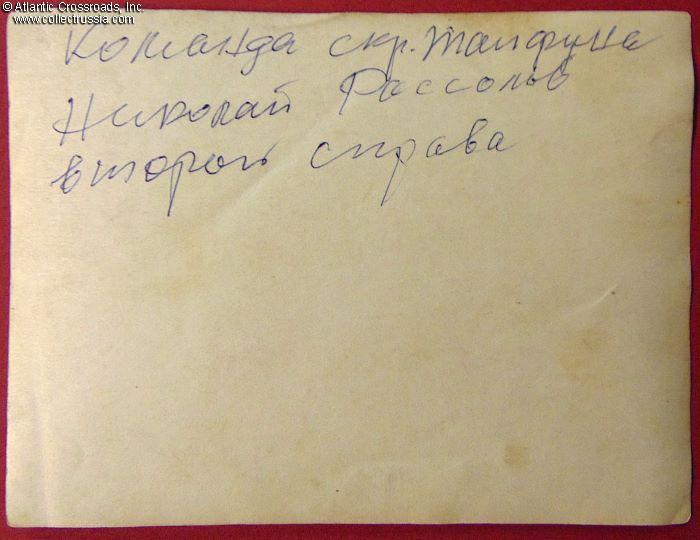 © Atlantic Crossroads, Inc.
www.collectrussia.com
Команда скр. Тайфуна
Николай Рассолов
второй справа